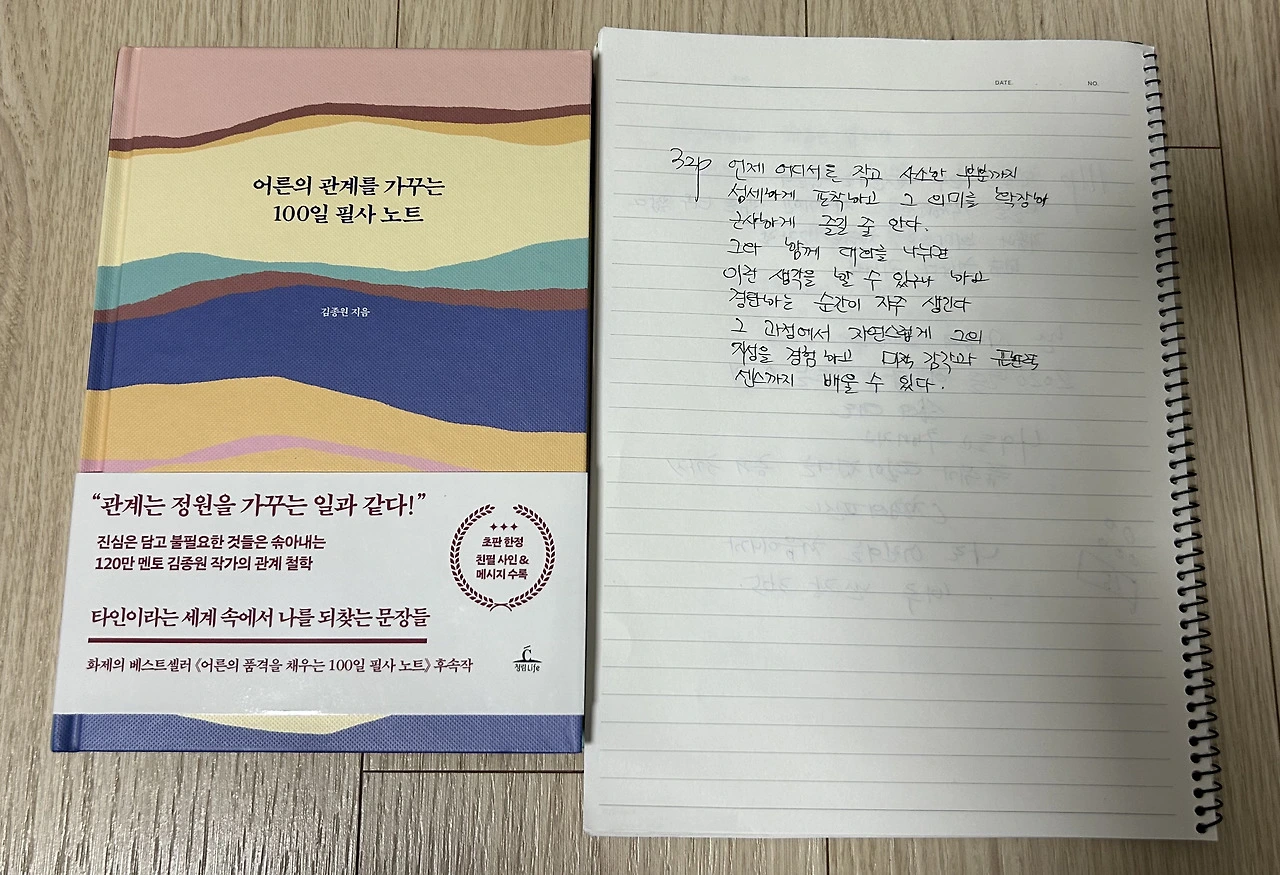 어른의 관계를 가꾸는
100일 필사 노트
김종원 지음
“관계는 정원을 가꾸는 일과 같다!”
진심은 담고 불필요한 것들은 솎아내는
120만 멘토 김종원 작가의 관계 철학
초판 한정
친필 사인 &
메시지 수록
타인이라는 세계 속에서 나를 되찾는 문장들
화제의 베스트셀러 《어른의 품격을 채우는 100일 필사 노트》 후속작
청림Life
DATE. NO.
32p 언제 어디서든 작고 사소한 부분까지
섬세하게 포착하고 그 의미를 확장하
근사하게 즐길 줄 안다.
그와 함께 대화를 나누면
이런 생각을 할 수 있구나 하고
경탄하는 순간이 자주 생긴다
그 과정에서 자연스럽게 그의
지성을 경험하고 미적 감각과
센스까지 배울 수 있다.